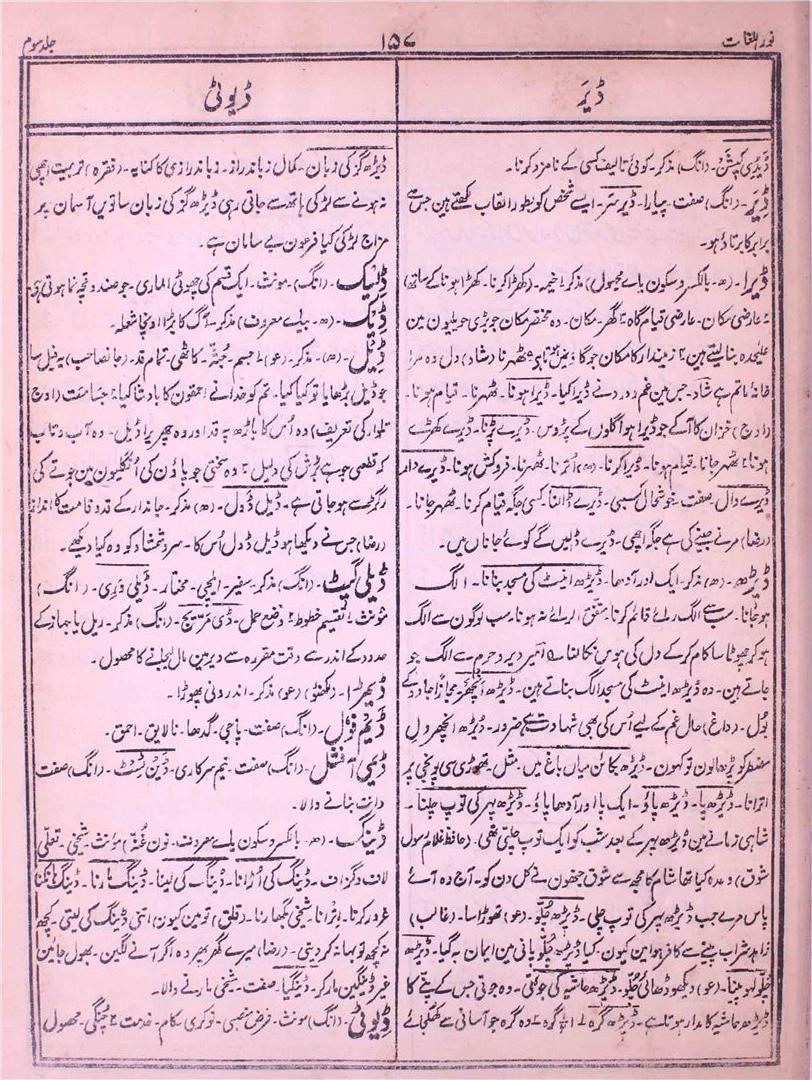 نور اللغات
۱۵۷
جلد سوم
ڈیَر
ڈیوٹی
ڈیڈی کیشن۔ (انگ) مذکر۔ کوئی تالیف کسی کے نامزد کرنا۔
ڈیَر۔ (انگ) صفت۔ پیارا۔ ڈیر سَر۔ ایسے شخص کو بطور القاب لکھتے ہین جس سے
برابر کا برتاؤ ہو۔
ڈیرا۔ (ھ۔ بالکسر و سکون یاے مجہول) مذکر ۱ خیمہ۔ (کھڑا کرنا۔ کھڑا ہونا کے ساتھ)
۲ عارضی مکان۔ عارضی قیام گاہ ۳ گھر۔ مکان۔ وہ مختصر مکان جو بڑی حویلیون مین
علیحدہ بنا لیتے ہین ۴ زمیندار کا مکان جو گاؤن مین ہو ۵ ٹھہرنا (شاد) دل وہ مرا
خانۂ ماتم ہے شاد۔ جس مین غم و درد نے ڈیرا کیا۔ ڈیرا ہونا۔ ٹھہرنا۔ قیام ہونا۔
(اوج) خزان کا آکے جو ڈیرا ہوا گلون کے پڑوس۔ ڈیرے پڑنا۔ ڈیرے کھڑے
ہونا ۲ ٹھہر جانا۔ قیام ہونا۔ ڈیرا کرنا۔ (ھ) اُترنا۔ ٹھہرنا۔ فروکش ہونا۔ ڈیرے دار
ڈیرے وال۔ صفت۔ خوشحال کسبی۔ ڈیرے ڈالنا۔ کسی جگہ قیام کرنا۔ ٹھہر جانا۔
(رضا) مرنے جینے کی ہے جگہ اچھی۔ ڈیرے ڈالین گے کوئے جانان مین۔
ڈیڑھ۔ (ھ) مذکر۔ ایک اور آدھا۔ ڈیڑھ اینٹ کی مسجد بنانا۔ الگ
ہو جانا۔ سب سے الگ رائے قائم کرنا۔ متفق الرائے نہ ہونا۔ سب لوگون سے الگ
ہو کر چھوٹا سا کام کر کے دل کی ہوس نکالنا ؎ امیر دیر و حرم سے الگ جو
جاتے ہین۔ وہ ڈیڑھ اینٹ کی مسجد الگ بناتے ہین۔ ڈیڑھ اَنچھَر۔ مجازاً جادو کے
بول۔ (داغ) حال غم کے لیے اُس کی بھی شہادت ہے ضرور۔ ڈیڑھ انچھر دل
مضطر کو پڑھا لون تو کہون۔ ڈیڑھ بکائن میان باغ مین۔ مثل۔ تھوڑی سی پونجی پر
اترانا۔ ڈیڑھ پا۔ ڈیڑھ پاؤ۔ ایک پا اور آدھا پاؤ۔ ڈیڑھ پہر کی توپ چلنا۔
شاہی زمانے مین ڈیڑھ پہر کے بعد شب کو ایک توپ چلتی تھی۔ (حافظ غلام رسول
شوق) وعدہ کیا تھا شام کا مجھ سے شوق جنھون نے کل دن کو۔ آج وہ آئے
پاس مرے جب ڈیڑھ پہر کی توپ چلی۔ ڈیڑھ چُلّو۔ (عو) تھوڑا سا۔ (غالب)
زاہد شراب پینے سے کافر ہوا مین کیون۔ کیا ڈیڑھ چلو پانی مین ایمان بہ گیا۔ ڈیڑھ
چُلّو لہو پینا۔ (عو) دیکھو ڈھائی چُلّو۔ ڈیڑھ حاشیہ کی جوتی۔ وہ جوتی جس کے پنّے کا
ڈیڑھ حاشیہ کامدار ہوتا ہے۔ ڈیڑھ گرہ ۱ ۱½ گرہ ۲ وہ گرہ جو آسانی سے کھُل جائے
ڈیڑھ گز کی زبان۔ کمال زباندراز۔ زباندرازی کا کنایہ۔ (فقرہ) تربیت اچھی
نہ ہونے سے لڑکی ہاتھ سے جاتی رہی ڈیڑھ گز کی زبان ساتوین آسمان پر
مزاج لڑکی کیا فرعون بے سامان ہے۔
ڈِیسک۔ (انگ)۔ مونث۔ ایک قسم کی چھوٹی الماری۔ جو صندوقچہ نما ہوتی ہے
ڈِیگ۔ (ھ۔ بیاے معروف) مذکر۔ آگ کا بڑا اونچا شعلہ۔
ڈِیل۔ (ھ)۔ مذکر۔ (عو) ۱ جسم۔ جُثّہ۔ کاٹھی۔ تمام قد۔ (جانصاحب) یہ فیل سا
جو ڈیل بڑھایا تو کیا کیا۔ تم کو خدا نے احمقون کا بادشا کیا ۲ جسامت (اوج
تلوار کی تعریف) وہ اُس کا باڑھ پہ قد اور وہ چھریرا ڈیل۔ وہ آب و تاب
کہ قطعی جو ہے بُرش کی دلیل ۳ وہ سختی جو پاؤن کی اُنگلیون مین جوتے کی
رگڑ سے ہو جاتی ہے۔ ڈیل ڈول۔ (ھ) مذکر۔ جاندار کے قد و قامت کا انداز
(رضا) جس نے دیکھا ہو ڈیل ڈول اُس کا۔ سرو شمشاد کو وہ کیا دیکھے۔
ڈیلی گیٹ۔ (انگ) مذکر۔ سفیر۔ ایلچی۔ مختار۔ ڈیلی وَری۔ (انگ)
مونث ۱ تقسیم خطوط ۲ وضع حمل۔ ڈی مَریج۔ (انگ) مذکر۔ ریل یا جہاز کے
حدود کے اندر سے وقت مقررہ سے دیر مین مال لیجانے کا محصول۔
ڈیمڑا۔ (لکھنؤ) (عو) مذکر۔ اندرونی پھوڑا۔
ڈَیم فُول۔ (انگ) صفت۔ پاجی۔ گدھا۔ نالایق۔ احمق۔
ڈیمی آفشل۔ (انگ) صفت۔ نیم سرکاری۔ ڈین ٹسٹ۔ (انگ) صفت
دانت بنانے والا۔
ڈِینگ۔ (ھ۔ بالکسر و سکون یاے معروف۔ نون غنہ) مؤنث۔ شیخی۔ تعلّی
لاف و گزاف۔ ڈینگ کی اُڑانا۔ ڈینگ کی لینا۔ ڈینگ مارنا۔ ڈینگ ہانکنا
غرور کرنا۔ اِترانا۔ شیخی بگھارنا۔ (قلق) تو مین کیون اتنی ڈینگ کی لیتی۔ کچھ
نہ کچھ تو بہانہ کر دیتی۔ (رضا) میرے گھر پھر وہ اگر آنے لگین۔ بھول جائین
غیر ڈینگین مار کر۔ ڈینگیا۔ صفت۔ شیخی مارنے والا۔
ڈیوٹی۔ (انگ) مونث۔ فرض منصبی۔ نوکری۔ کام۔ خدمت ۲ چنگی۔ محصول